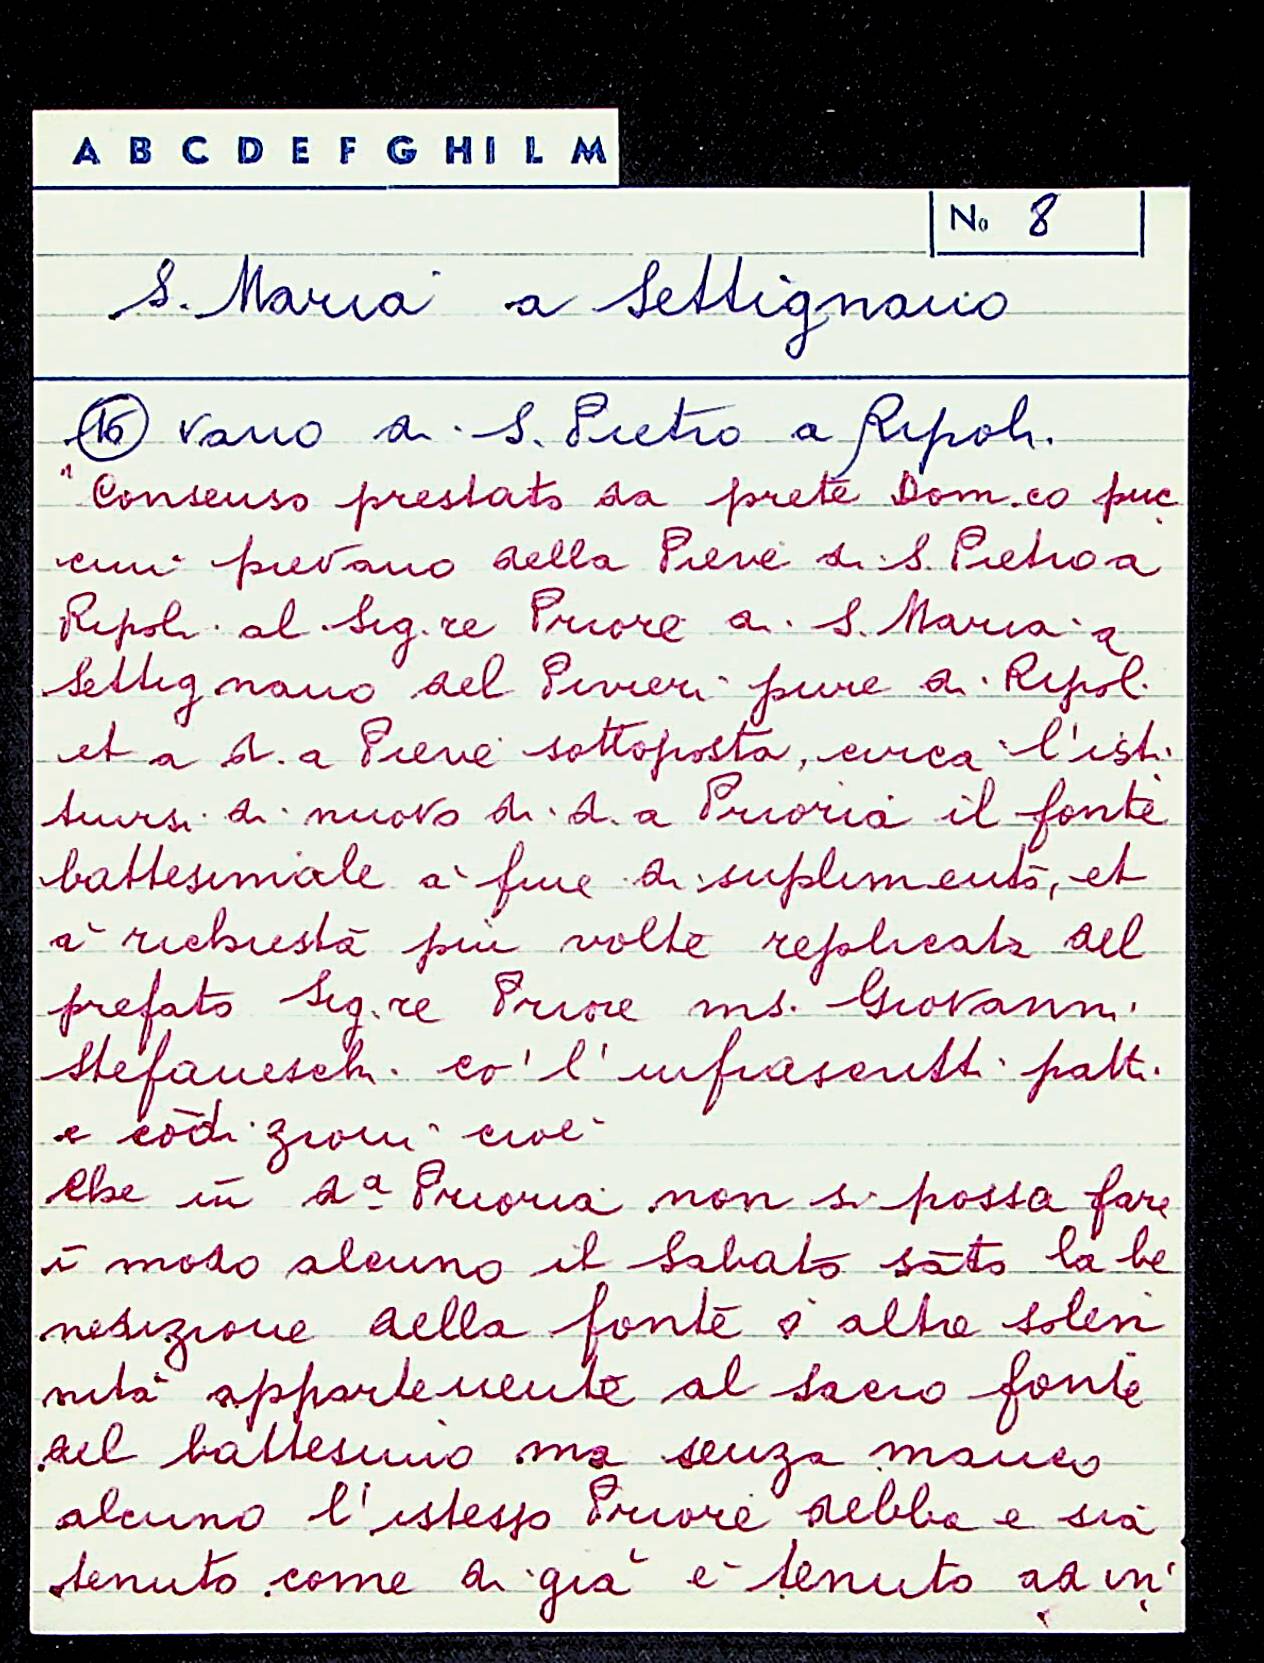 A B C D E F G H I L M
No 8
S. Maria a Settignano
16 vano di S. Pietro a Ripoli.
"Consenso prestato da prete Dom.co puc
cini pievano della Pieve di S. Pietro a
Ripoli al Sig.re Priore di S. Maria a
Settignano del Pivieri pure di Ripoli
et a d.a Pieve sottoposta, circa l'isti
tuirsi di nuovo di d.a Prioria il fonte
battesimale a fine di suplimento, et
a richiesta più volte replicata del
prefato Sig.re Priore ms. Giovanni
Stefaneschi co' l'infrascritti patti
e cōdizioni cioè
Che in d.a Prioria non si possa fare
ī modo alcuno il Sabato sāto la be
nedizione della fonte o altre solen
nità appartenente al sacro fonte
del battesimo ma senza manco
alcuno l'istesso Priore debba e sia
tenuto come di già è tenuto ad in